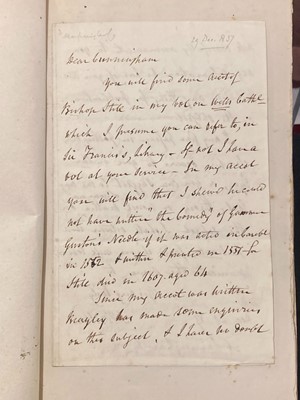 29 Dec. 1837
Dear Cunningham
You will find some acct of
Bishop Still in my vol on Wells Cathl.
which I presume you can refer to, in
Sir Francis's, library – If not I have a
vol at your service – In my acct
you will find that I shew he could
not have written the Comedy of Gammer
Gurton's Needle if it was acted in
in 1552 & written & printed in 1551 – for
Still died in 1607. aged 64
Since my acct was written
has made some enquiries
on this subject, & I have no doubt